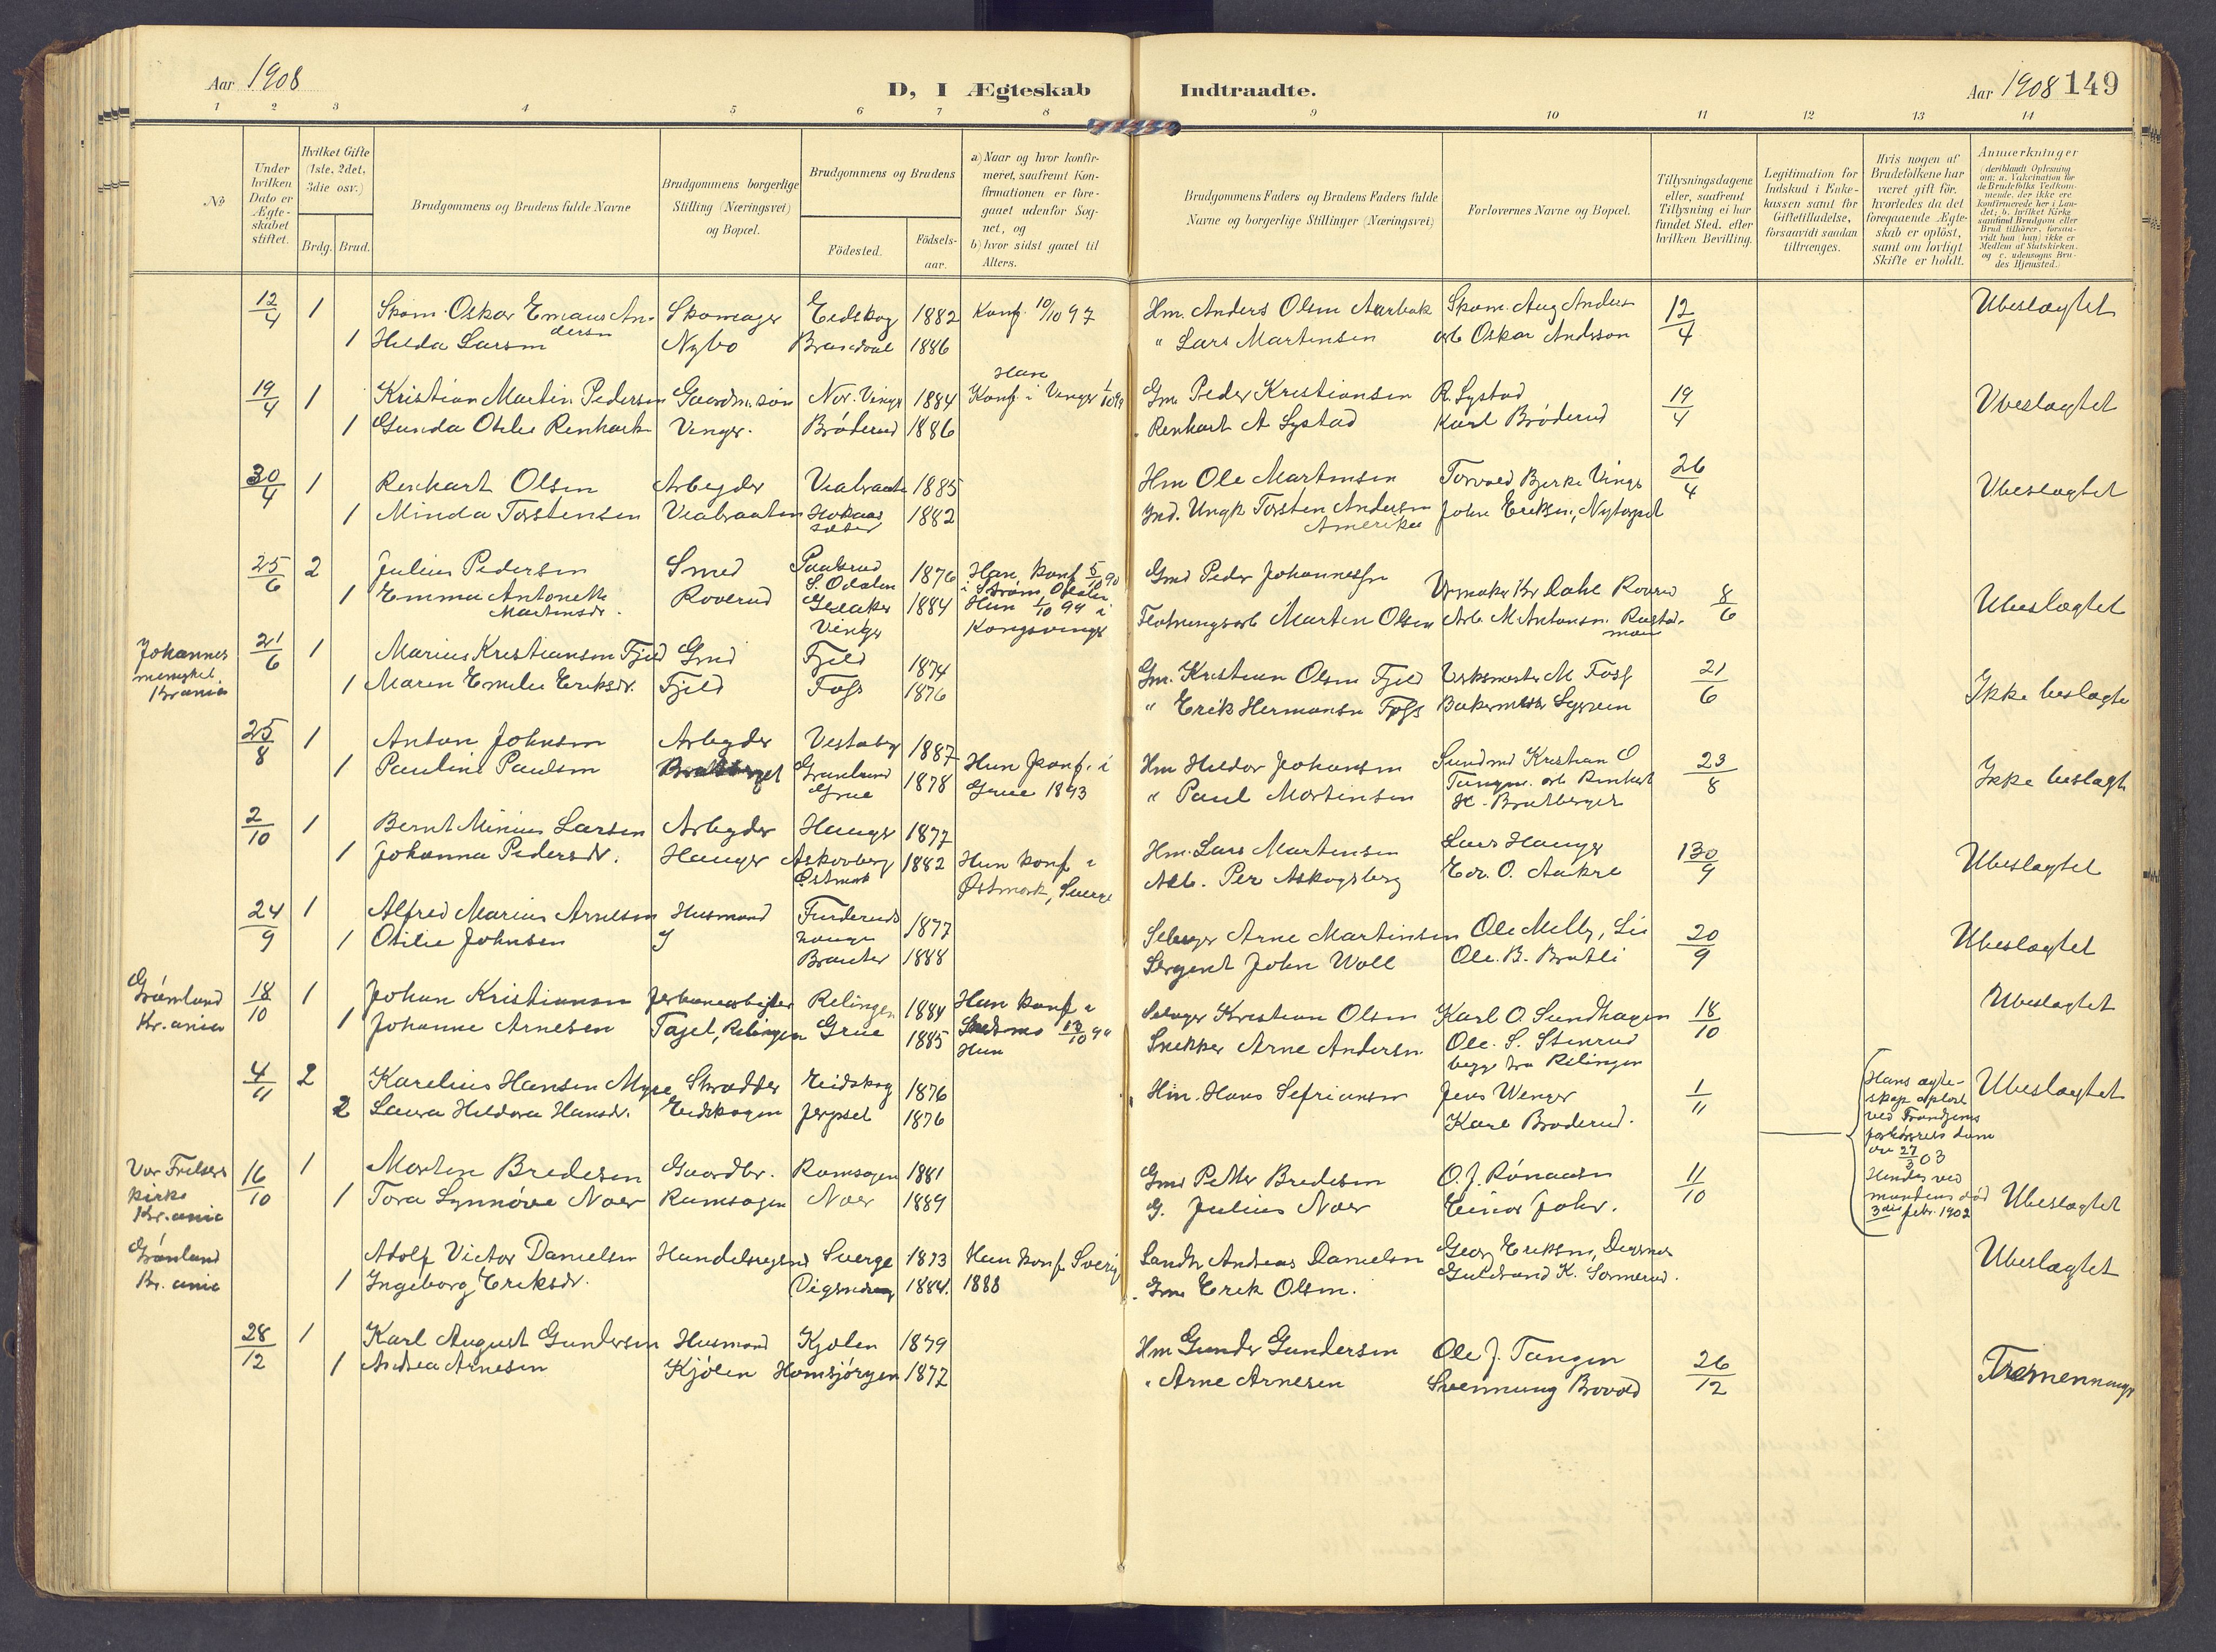 Aar 1908
D, I Ægteskab Indtraadte.
Aar 1908 149
1 2 3 4 5 6 7 8 9 10 11 12 13 14
No
Under hvilken Dato er Ægteskabet stiftet.
Hvilket Gifte (1ste, 2det, 3die osv.)
Brdg. Brud.
Brudgommens og Brudens fulde Navne
Brudgommens borgerlige Stilling (Næringsvei) og Bopæl.
Brudgommens og Brudens
Fødested.
Fødselsaar.
a) Naar og hvor konfirmeret, saafremt Konfirmationen er foregaaet udenfor Sognet, og
b) hvor sidst gaaet til Alters.
Brudgommens Faders og Brudens Faders fulde Navne og borgerlige Stillinger (Næringsvei)
Forlovernes Navne og Bopæl.
Tillysningsdagene eller, saafremt Tillysning ei har fundet Sted, efter hvilken Bevilling.
Legitimation for Indskud i Enkekassen samt for Giftetilladelse, forsaavidt saadan tiltrænges.
Hvis nogen af Brudefolkene har været gift før, hvorledes da det foregaaende Ægteskab er opløst, samt om lovligt Skifte er holdt.
Anmerkninger (deriblandt Oplysning om: a. Vaksination for de Brudefolks Vedkommende, der ikke ere konfirmerede her i Landet; b. hvilket Kirkesamfund Brudgom eller Brud tilhører, forsaavidt han (hun) ikke er Medlem af Statskirken, og c. udensogns Brudes Hjemsted.)
12/4 1 Skom. Oskar Emaus An- Skomager Eidskog 1882 Konf. 10/10 97 Hm. Anders Olsen Aurbak Skom. Aug Anders 12/4 Ubeslægtet
dersn
1 Hilda Larsen Nybo Brandval 1886 " Lars Martinsen arb Oskar Anderson
19/4 1 Kristian Martin Pedersen Gaardm. søn Nor. Vinger 1884 Han Konf. i Vinger 1/10 99 Gm. Peder Kristiansen R. Lystad 19/4 Ubeslægtet
1 Gunda Otilie Renhart Vinger. Brøderud 1886 " Renhart A Lystad Karl Brøderud
30/4 1 Renhart Olsen Arbeyder Vealraaten 1885 Hm Ole Martinsen Torvald Bjerke Vinger 26/4 Ubeslægtet
1 Minda Torstensen Vealraaten 1882 Ind. Ungk Torsten Andersen John Eriksen, Nytorpet
Amerika
25/6 2 Julius Pedersen Smed S. Odalen 1876 Han konf 5/10 90 Gmd Peder Johannessen Urmaker Kr Dahl Roverud 8/6 Ubeslægtet
1 Emma Antonette Roverud Vinger 1884 Hun 1/10 99 i Fløtningsarb Martin Olsen Arb. M Antonsen
Martinsdr. Kongsvinger
Johannes menighet Kr.ania
21/6 1 Marius Kristiansen Fjeld Gmd Fjeld 1874 Gm. Kristian Olsen Fjeld Verksmester M Foss 21/6 Ikke beslægte
1 Maren Emilie Eriksdr. Fjeld Foss 1876 " Erik Hermansen Foss Bakermester
25/8 1 Anton Johnsen Arbeyder Vestaberg 1887 Hun konf. i Hm Hildor Johansen Sundmd Kristian O 23/8 Ikke beslægt
1 Pauline Paulsen Bratberget Granlund 1878 Grue 1893 " Paul Martinsen Tangen. arb Renhart
Grue H. Bratberget
2/10 1 Bernt Minius Larsen Arbeyder Hauger 1877 Hm. Lars Martinsen Lars Hauger 130/9 Ubeslægtet
1 Johanna Pedersdr. Hauger Askovberg 1882 Hun konf i Arb. Per Askogsberg Edv. O. Aakre
Østmark Østmark, Sverge
24/9 1 Alfred Marius Arnesen Husmand Furderuds 1877 Selveyer Arne Martinsen Ole Melby, Li 20/9 Ubeslægtet
1 Otilie Johnsen hauger
Branter 1888 Sergent John Woll Ole. B. Bratli
Grønland Kr.ania
18/10 1 Johan Kristiansen Jernbanearbeyder Relingen 1884 Han konf i Selveyer Kristian Olsen Karl O. Sundhagen 18/10 Ubeslægtet
1 Johanne Arnesen Tajet, Relingen Grue 1885 Snekker Arne Andersen Ole. S. Stenrud
begge fra Relingen
4/11 2 Karelius Hansen Myre Skrædder Eidskog 1876 Hm. Hans Sefriansen Jens Wenger 1/11 Ubeslægtet
2 Laura Hildora Hansdr. Eidskogen Jerpset 1876 Karl Brøderud.
Hans ægteskap opløst ved Trondjems forhørsrets dom av 27/3 03
Hendes ved mandens død 3die febr. 1902
Vor Frelsers kirke Kr.ania
16/10 1 Morten Bredesen Gaardbr. Ramsogen 1881 Gmd Petter Bredesen O. J. Rønaasen 11/10 Ubeslægtet
1 Tora Synnøve Noer Ramsogen Noer 1889 G. Julius Noer Einar Johr.
Grønland Kr. ania
Adolf Victor Danielsen Handelsreysnd Sverge 1873 Han konf Sverig Landbr Andreas Danielsen Georg Eriksen, Digernes Ubeslægtet
1 Ingeborg Eriksdr. 1884. 1888 " Gm. Erik Olsen. Guldbrand K. Sormerud.
28/12 1 Karl August Gundersen Husmand Kjølen 1879 Hm Gunder Gundersen Ole J. Tangen 26/12 Tremenninger
1 Andrea Arnesen Kjølen Hamsjørgen 1877 " Arne Arnesen Svennung Bovold